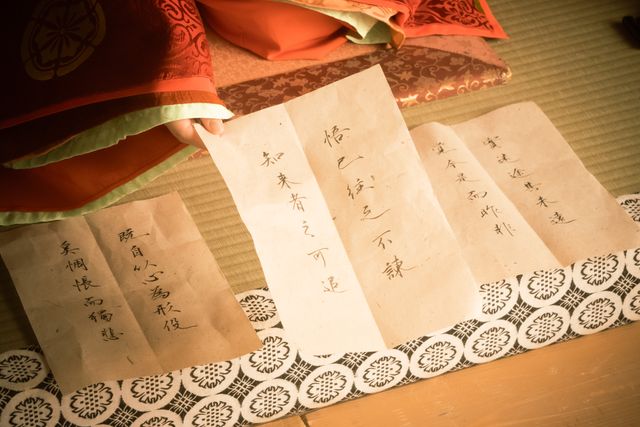 既自以心為形役
奚惆悵而獨悲
悟已往之不諫
知來者之可追
實迷途其未遠
覺今是而昨非